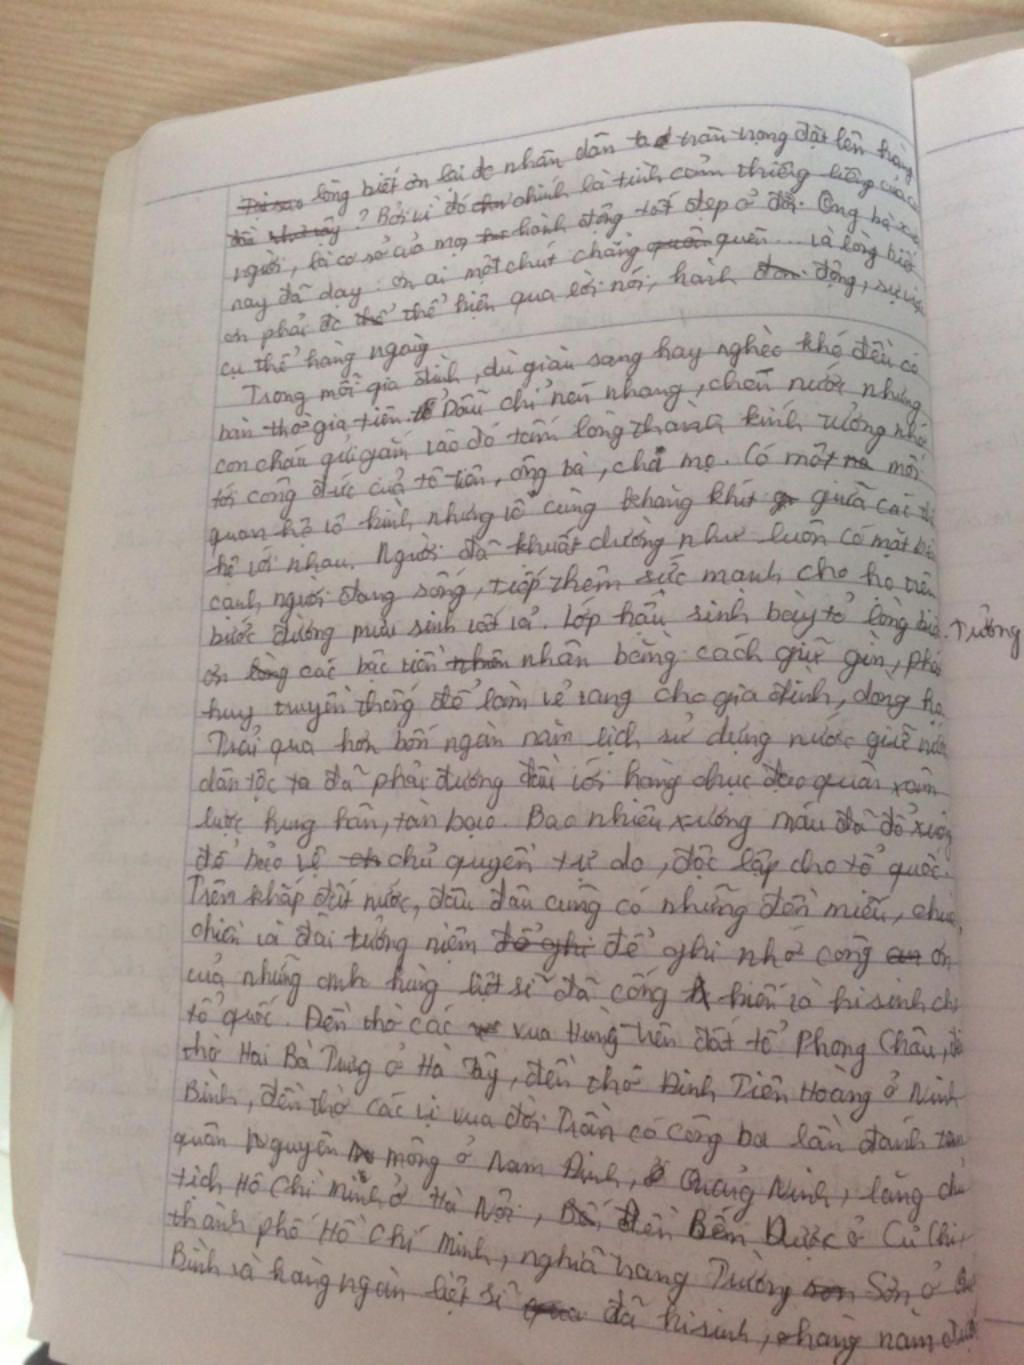 lòng biết ơn lại đc nhân dân ta trân trọng đặt lên hàng
đầu ? Bởi vì đó chính là tình cảm thiêng liêng của co
người, là cơ sở của mọi hành động tốt đẹp ở đời. Ông bà xưa
nay đã dạy: ơn ai một chút chẳng quên ... và lòng biết
ơn phải đc thể hiện qua lời nói, hành động, sự việc
cụ thể hàng ngày
Trong mỗi gia đình, dù giàu sang hay nghèo khó đều có
bàn thờ gia tiên. Dẫu chỉ nén nhang, chén nước nhưng
con cháu gửi gắm vào đó tấm lòng thành kính tưởng nhớ
tới công đức của tổ tiên, ông bà, cha mẹ. Có một mối
quan hệ vô hình nhưng vô cùng khăng khít giữa các thế
hệ với nhau. Người đã khuất dường như luôn có mặt bên
cạnh người đang sống, tiếp thêm sức mạnh cho họ trên
bước đường mưu sinh vất vả. Lớp hậu sinh bày tỏ lòng biết
Tưởng
ơn các bậc tiền nhân bằng cách giữ gìn, phát
huy truyền thống để làm vẻ vang cho gia đình, dòng họ
Trải qua hơn bốn ngàn năm lịch sử dựng nước giữ nước
dân tộc ta đã phải đương đầu với hàng chục đạo quân xâm
lược hung hãn, tàn bạo. Bao nhiêu xương máu đã đổ xuống
để bảo vệ chủ quyền tự do, độc lập cho tổ quốc.
Trên khắp đất nước, đâu đâu cũng có những đền miếu, chùa
chiền và đài tưởng niệm để ghi nhớ công ơn
của những anh hùng liệt sĩ đã cống hiến và hi sinh cho
tổ quốc. Đền thờ các vua Hùng trên đất tổ Phong Châu, đền
thờ Hai Bà Trưng ở Hà Tây, đền thờ Đinh Tiên Hoàng ở Ninh
Bình, đền thờ các vị vua đời Trần có công ba lần đánh tan
quân Nguyên mông ở Nam Định, Quảng Ninh, lăng chủ
tịch Hồ Chí Minh ở Hà Nội, đền Bến Dược ở Củ Chi,
thành phố Hồ Chí Minh, nghĩa trang Trường Sơn ở
Bình và hàng ngàn liệt sĩ đã hi sinh, hàng năm được